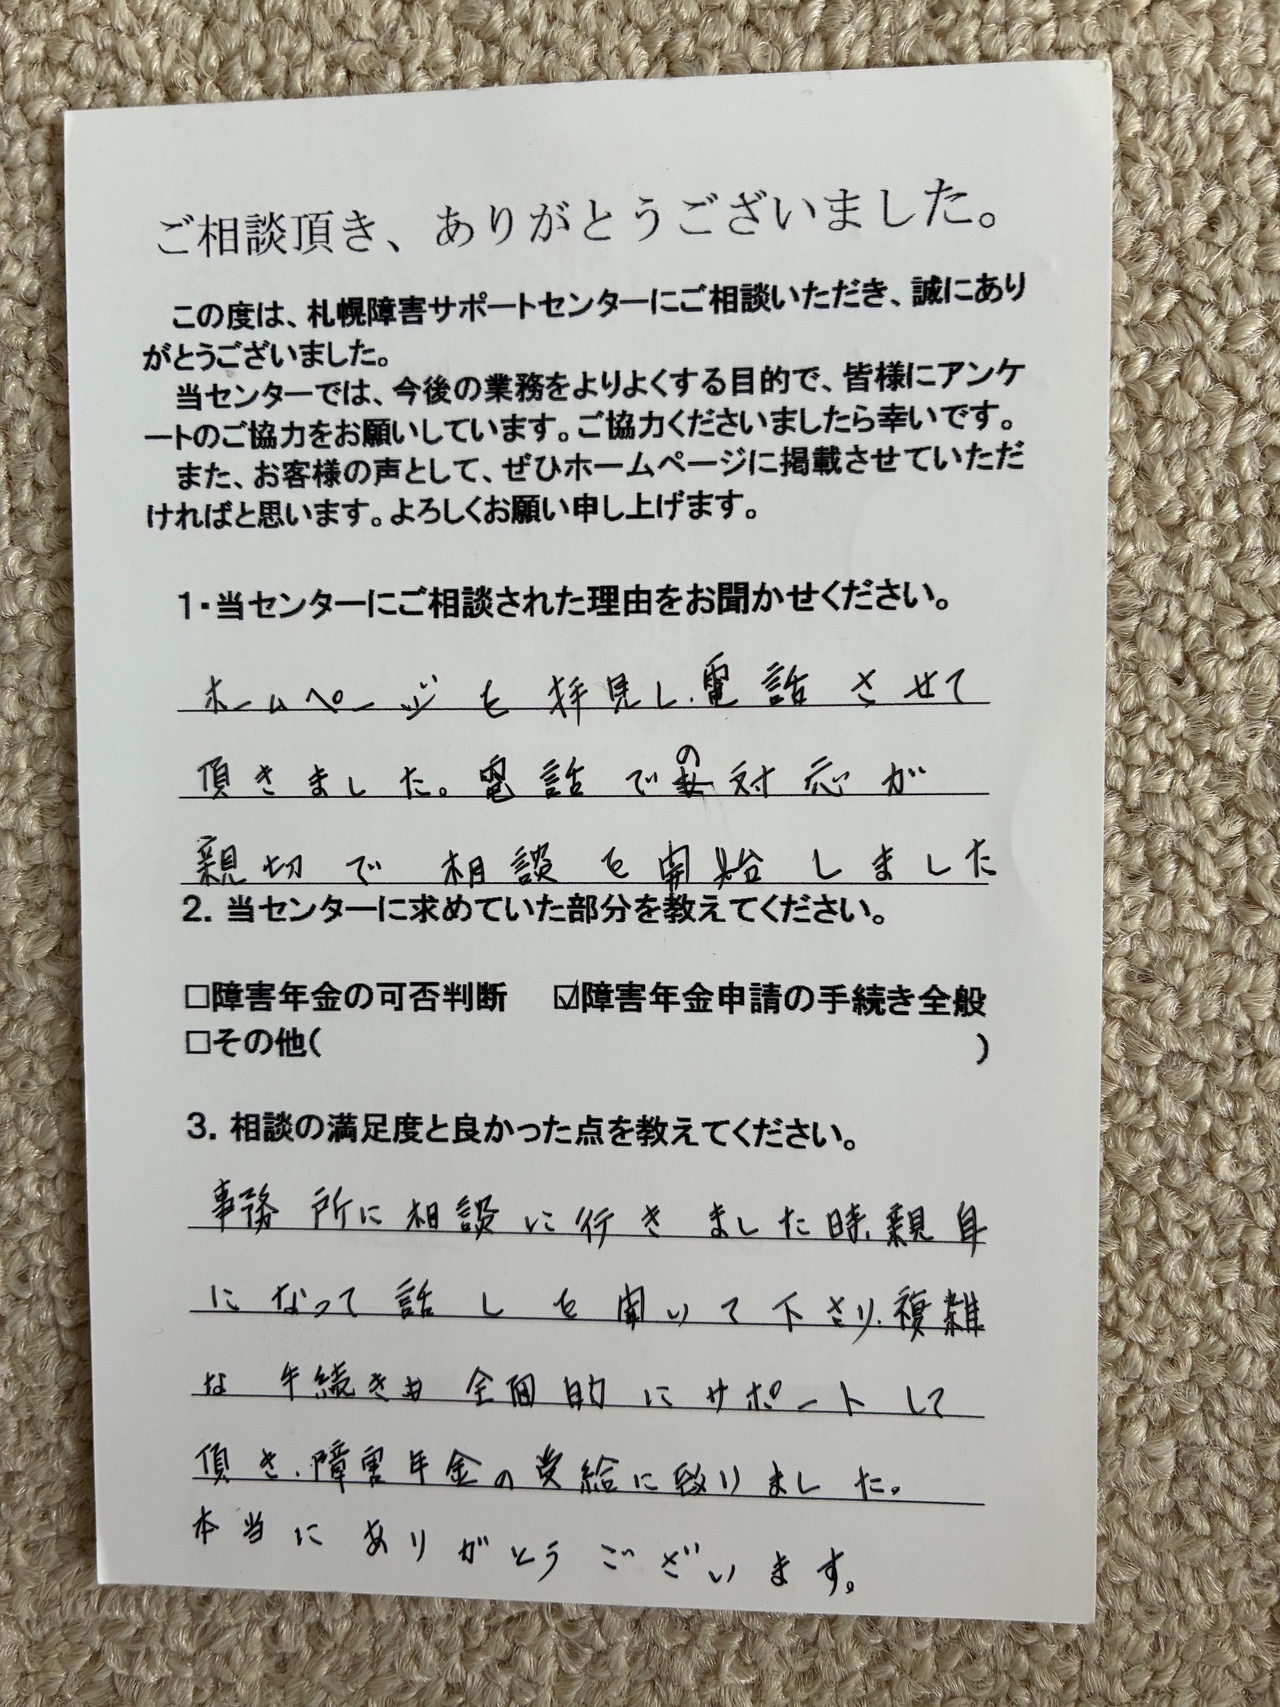 ご相談頂き、ありがとうございました。
この度は、札幌障害サポートセンターにご相談いただき、誠にあり
がとうございました。
当センターでは、今後の業務をよりよくする目的で、皆様にアンケ
ートのご協力をお願いしています。ご協力くださいましたら幸いです。
また、お客様の声として、ぜひホームページに掲載させていただ
ければと思います。よろしくお願い申し上げます。
1・当センターにご相談された理由をお聞かせください。
ホームページを拝見し、電話させて
頂きました。電話での対応が
親切で相談を開始しました
2. 当センターに求めていた部分を教えてください。
□障害年金の可否判断 ☑障害年金申請の手続き全般
□その他( )
3. 相談の満足度と良かった点を教えてください。
事務所に相談に行きました時、親身
になって話しを聞いて下さり、複雑
な手続きも全面的にサポートして
頂き、障害年金の受給に致りました。
本当にありがとうございます。